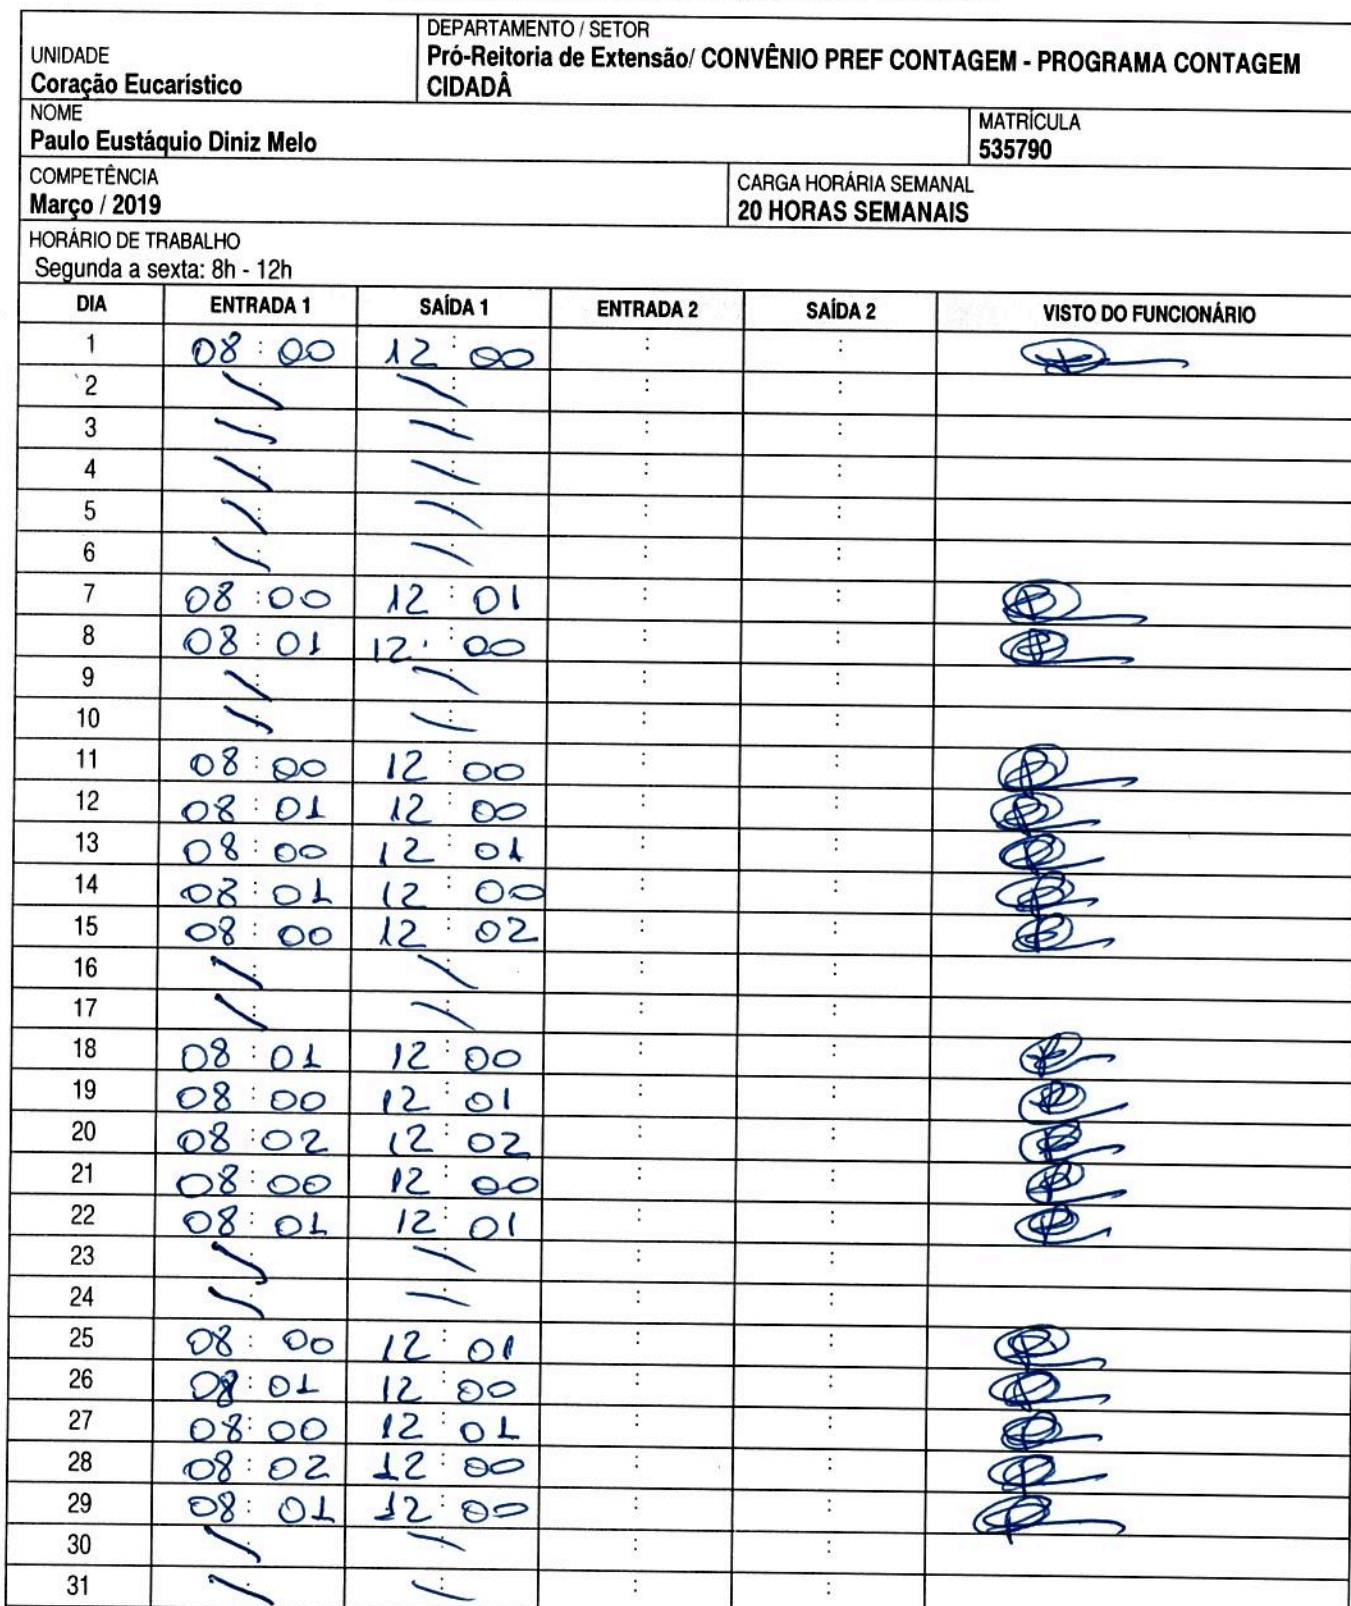 DEPARTAMENTO / SETOR
UNIDADE
Pró-Reitoria de Extensão/ CONVÊNIO PREF CONTAGEM - PROGRAMA CONTAGEM
Coração Eucarístico
CIDADÂ
NOME
MATRÍCULA
Paulo Eustáquio Diniz Melo
535790
COMPETÊNCIA
CARGA HORÁRIA SEMANAL
Março / 2019
20 HORAS SEMANAIS
HORÁRIO DE TRABALHO
Segunda a sexta: 8h - 12h
DIA ENTRADA 1 SAÍDA 1 ENTRADA 2 SAÍDA 2 VISTO DO FUNCIONÁRIO
1 08:00 12:00 : :
2 : : : :
3 : : : :
4 : : : :
5 : : : :
6 : : : :
7 08:00 12:01 : :
8 08:01 12:00 : :
9 : : : :
10 : : : :
11 08:00 12:00 : :
12 08:01 12:00 : :
13 08:00 12:01 : :
14 08:01 12:00 : :
15 08:00 12:02 : :
16 : : : :
17 : : : :
18 08:01 12:00 : :
19 08:00 12:01 : :
20 08:02 12:02 : :
21 08:00 12:00 : :
22 08:01 12:01 : :
23 : : : :
24 : : : :
25 08:00 12:01 : :
26 08:01 12:00 : :
27 08:00 12:01 : :
28 08:02 12:00 : :
29 08:01 12:00 : :
30 : : : :
31 : : : :